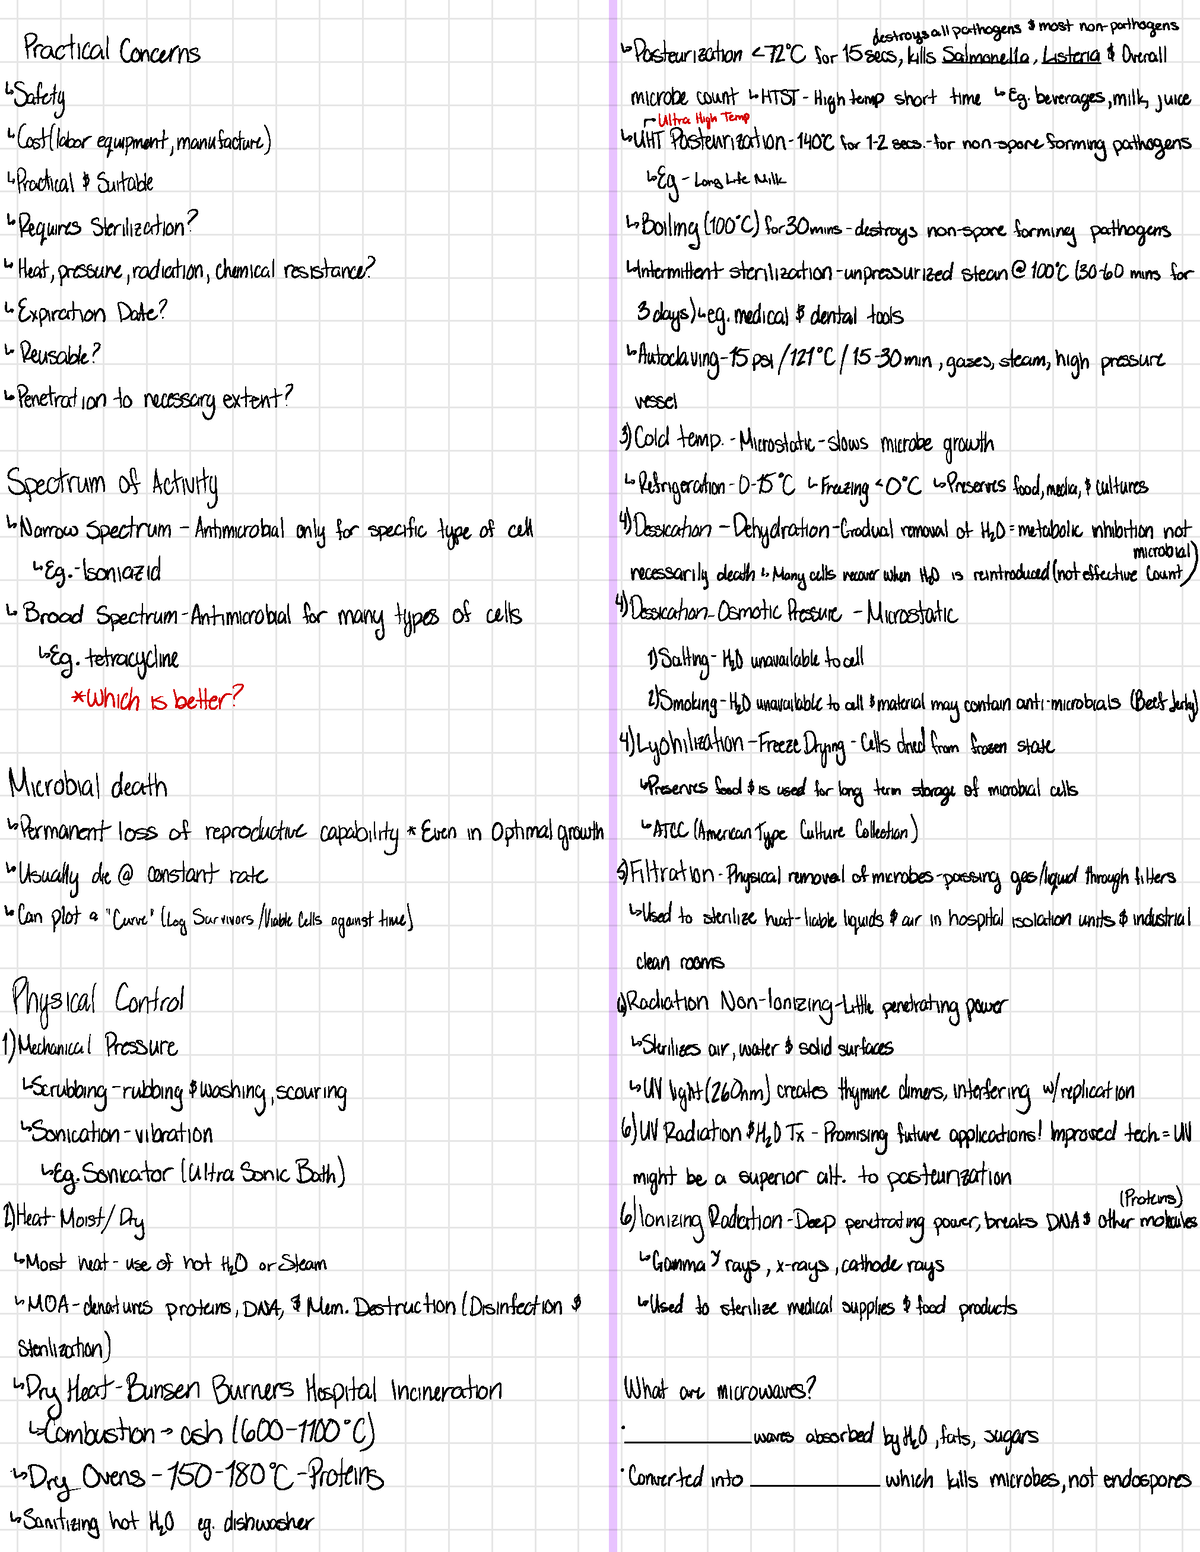 Practical Concerns
↳Safety
↳Cost (labor equipment, manufacture)
↳Practical & Suitable
↳Requires Sterilization?
↳Heat, pressure, radiation, chemical resistance?
↳Expiration Date?
↳Reusable?
↳Penetration to necessary extent?
Spectrum of Activity
↳Narrow Spectrum - Antimicrobial only for specific type of cell
↳Eg.-Isoniazid
↳Broad Spectrum-Antimicrobial for many types of cells
↳Eg. tetracycline
*Which is better?
Microbial death
↳Permanent loss of reproductive capability *Even in Optimal growth
↳Usually die @ constant rate
↳Can plot a "Curve" (Log Survivors/Viable Cells against time)
Physical Control
1) Mechanical Pressure
↳Scrubbing-rubbing & washing, scouring
↳Sonication-vibration
↳Eg. Sonicator (Ultra Sonic Bath)
2) Heat-Moist/Dry
↳Moist heat - use of hot H2O or Steam
↳MOA-denatures proteins, DNA, & Mem. Destruction (Disinfection &
Sterilization)
↳Dry Heat-Bunsen Burners Hospital Incineration
↳Combustion → ash (600-1100°C)
↳Dry Ovens - 150-180°C-Proteins
↳Sanitizing hot H2O eg. dishwasher
destroys all pathogens & most non-pathogens
↳Pasteurization <72°C for 15 secs, kills Salmonella, Listeria & Overall
microbe count ↳HTST - High temp short time ↳Eg. beverages, milk, juice
Ultra High Temp
↳UHT Pasteurization-140°C for 1-2 secs.-for non-spore forming pathogens
↳Eg - Long Life Milk
↳Boiling (100°C) for 30 mins - destroys non-spore forming pathogens
↳Intermittent sterilization-unpressurized stean @ 100°C (30-60 mins for
3 days) ↳eg. medical & dental tools
↳Autoclaving-15 psi/121°C/15-30 min, gazes, steam, high pressure
vessel
3) Cold temp. - Microstatic - slows microbe growth
↳Refrigeration-0-15°C ↳Freezing <0°C ↳Preserves food, media, & cultures
4) Dessication - Dehydration-Gradual removal of H2O = metabolic inhibition not
microbial)
necessarily death ↳Many cells recover when H2O is reintroduced (not effective Count)
4) Dessication-Osmotic Pressure - Microstatic
1) Salting- H2O unavailable to cell
2) Smoking-H2O unavailable to cell & material may contain anti-microbials (Beef Jerky)
4) Lyohilization - Freeze Drying - Cells dried from frozen state
↳Preserves food & is used for long term storage of microbial cells
↳ATCC (American Type Culture Collection)
5) Filtration-Physical removal of microbes-passing gas/liquid through filters
↳Used to sterilize heat-liable liquids & air in hospital isolation units & industrial
clean rooms
6) Radiation Non-Ionizing-Little penetrating power
↳Sterilizes air, water & solid surfaces
↳UV light (260nm) creates thymine dimers, interfering w/replication
6) UV Radiation & H2O Tx - Promising future applications! Improved tech.=UV
might be a superior alt. to pasteurization
(Proteins)
6) Ionizing Radiation-Deep penetrating power, breaks DNA & other molecules
↳Gamma γ rays, x-rays, cathode rays
↳Used to sterilize medical supplies & food products
What are microwaves?
·__________ waves absorbed by H2O, fats, sugars
·Converted into __________ which kills microbes, not endospores